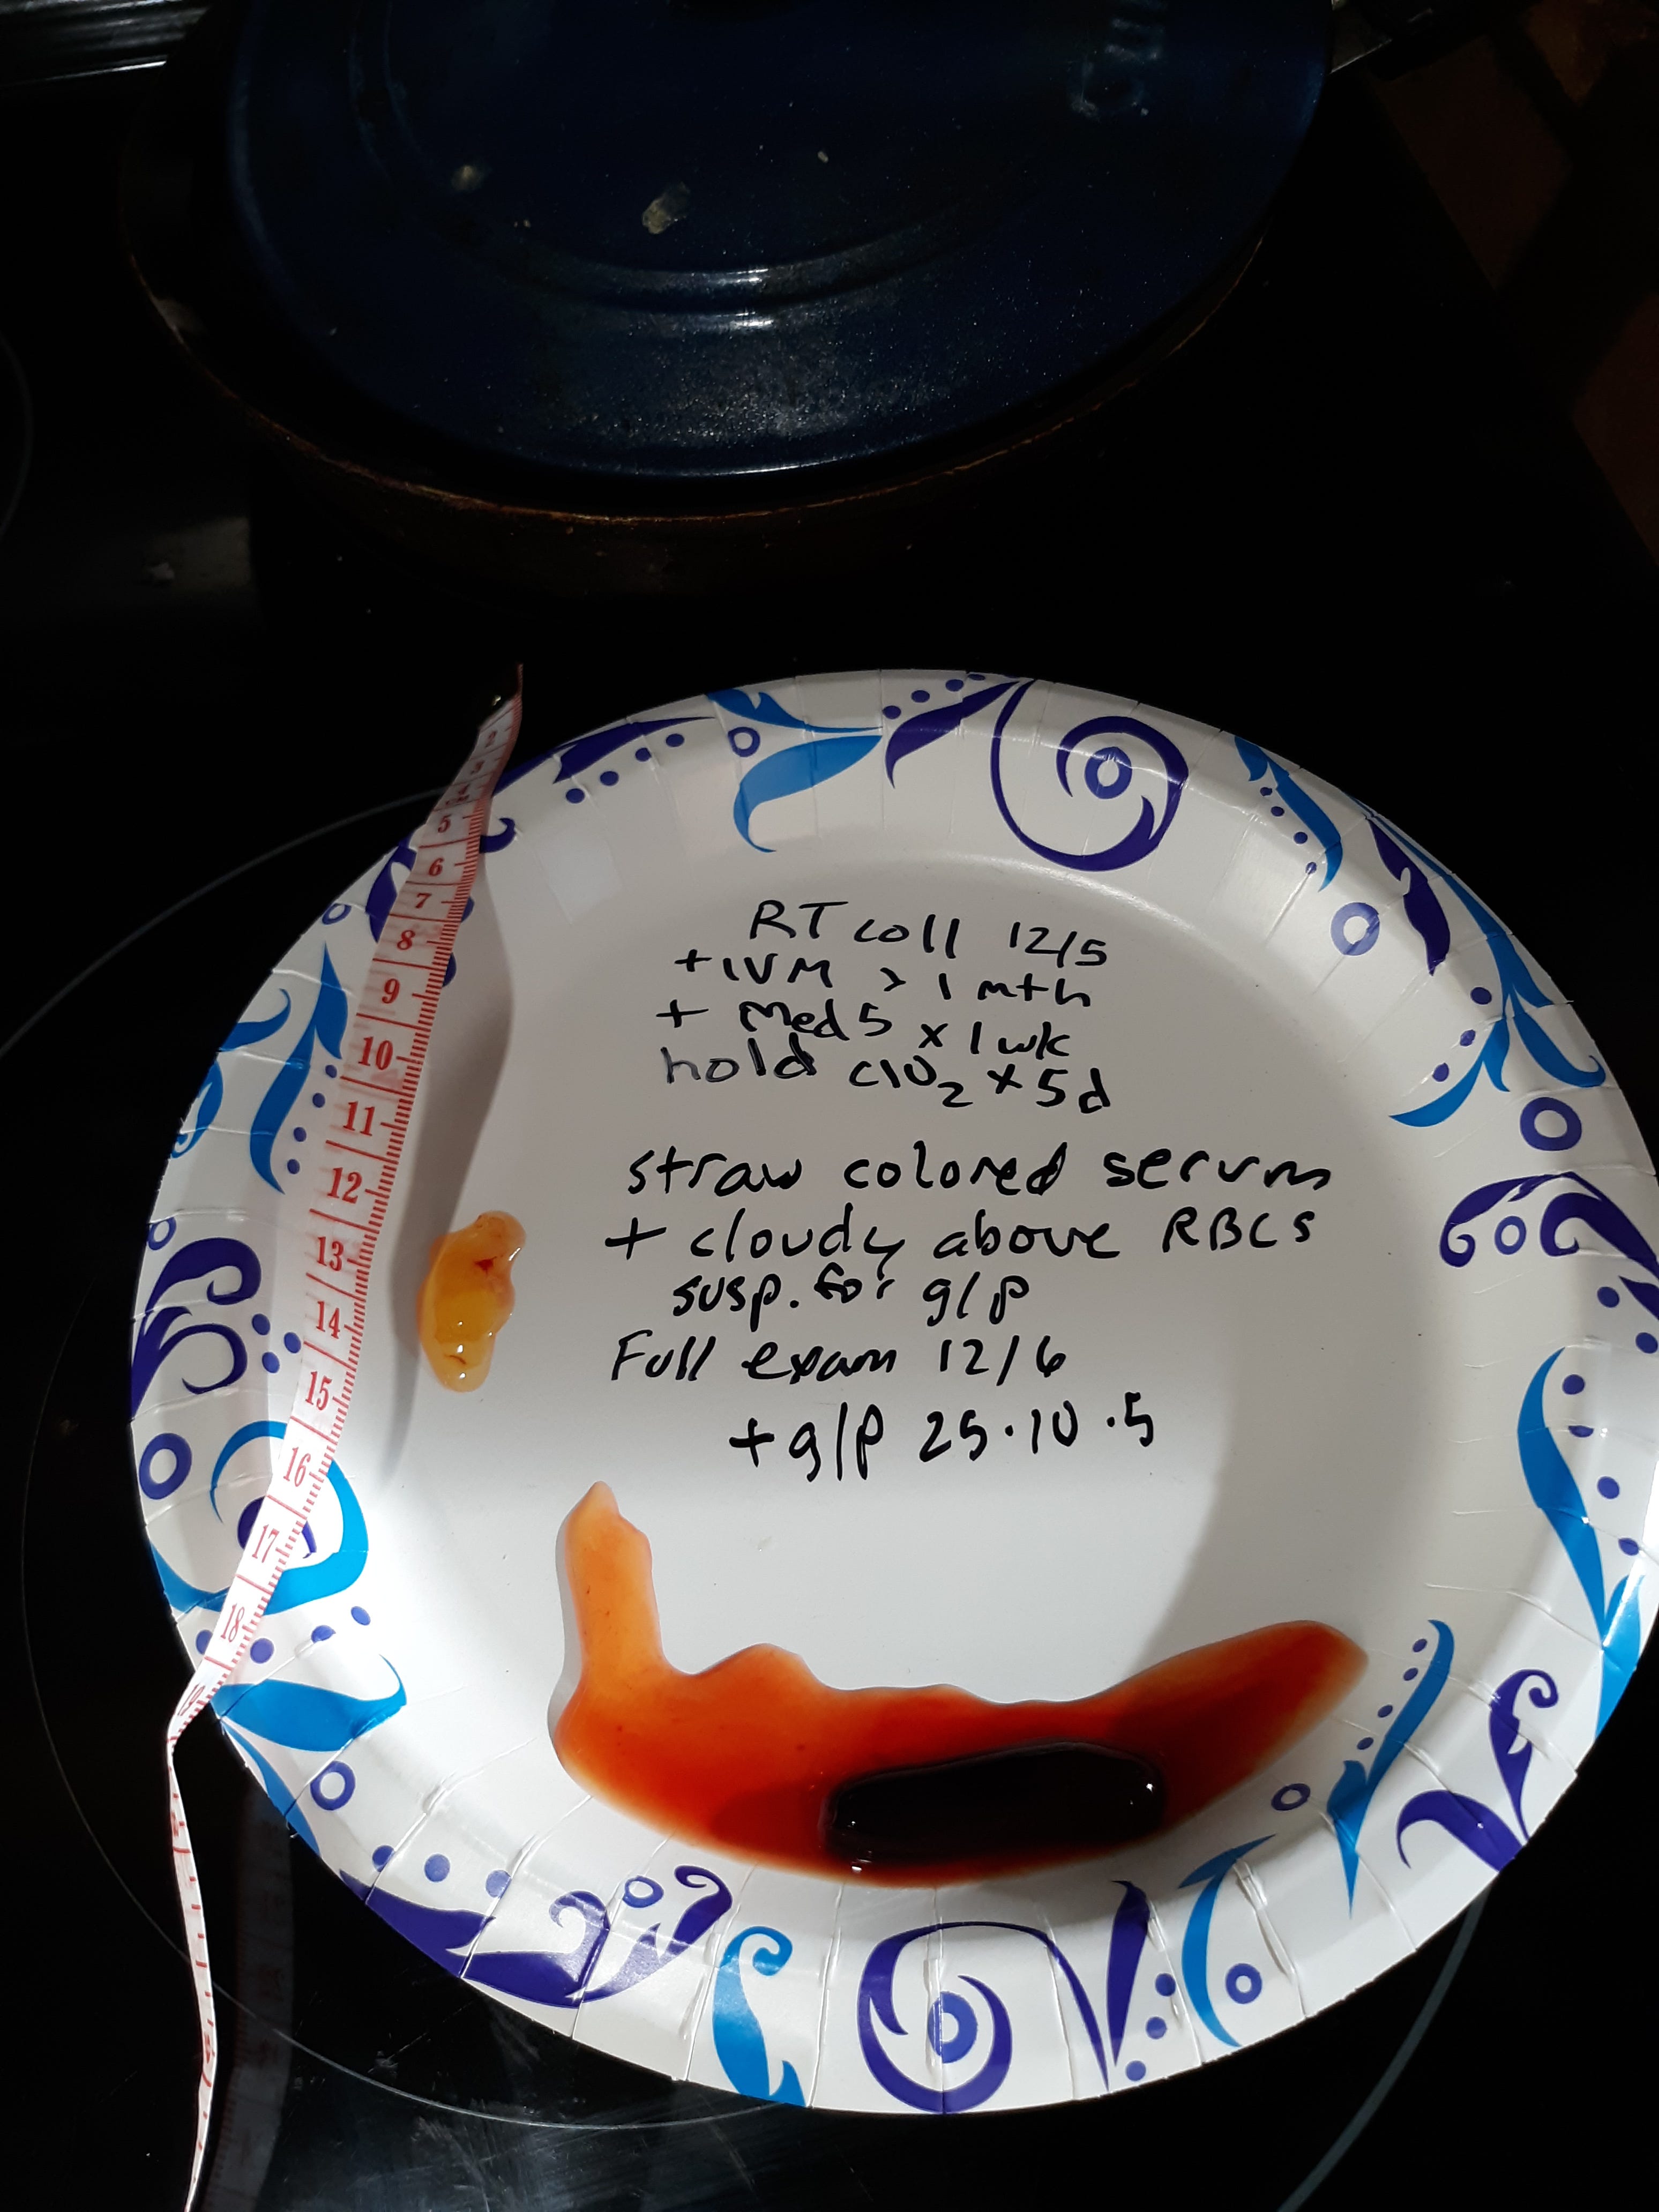 RT coll 12/5
+ IVM > 1 mth
+ Med 5 x 1 wk
hold ClO2 x 5d
straw colored serum
+ cloudy above RBCs
susp. for g/p
Full exam 12/6
+ g/p 25·10·5
2
3
4
5
6
7
8
9
10
11
12
13
14
15
16
17
18
19